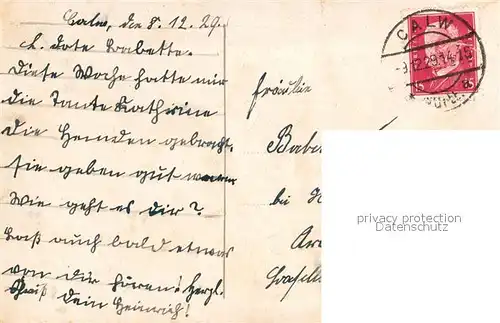 Calw, den 8.12.29.
L. Dote Babette.
Diese Woche hatte mir
die Tante Katharine
die Hemden gebracht,
sie geben gut
Wie geht es dir?
Laß auch bald etwas
von dir hören! Herzl.
Gruß Dein Heinrich!
Fräulein
Babe
bei
CALW
9.12.29.14-15
privacy protection
Datenschutz